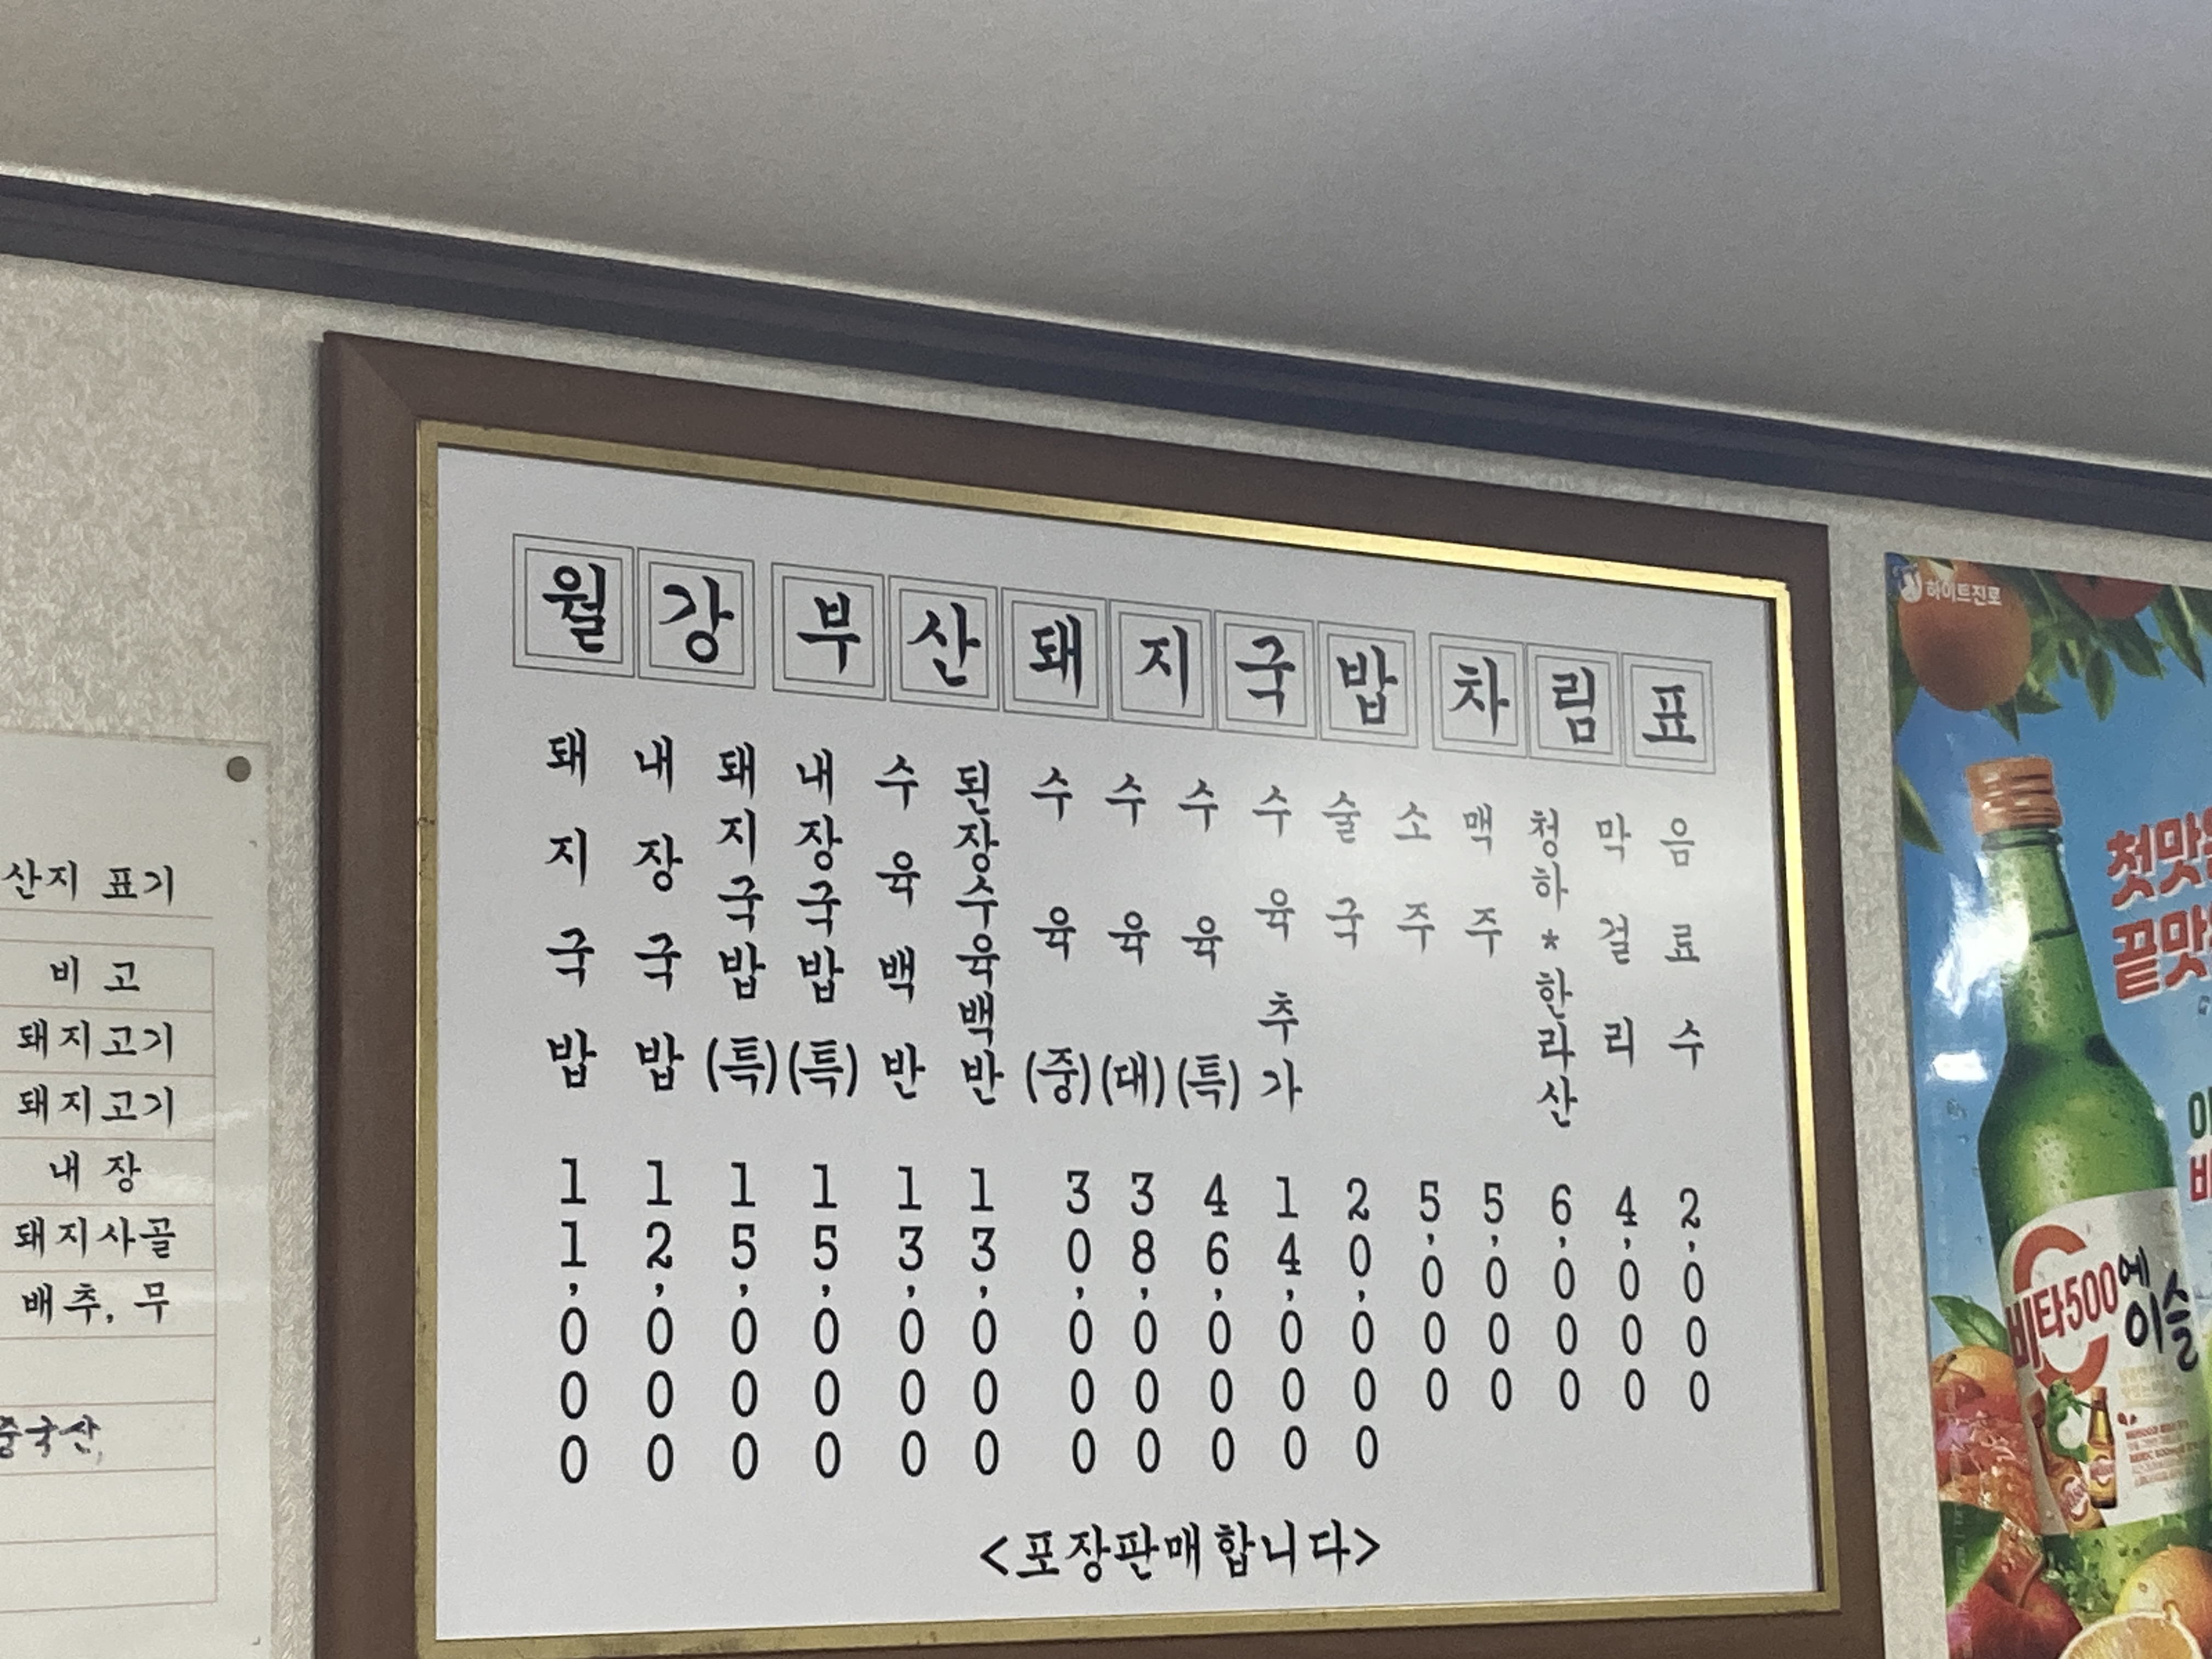 산지 표기
비고
돼지고기
돼지고기
내장
돼지사골
배추, 무
중국산
월강 부산돼지국밥 차림표
돼지국밥 11,000
내장국밥 12,000
돼지국밥(특) 15,000
내장국밥(특) 15,000
수육백반 13,000
된장수육백반 13,000
수육(중) 30,000
수육(대) 38,000
수육(특) 46,000
수육추가 14,000
술국 20,000
소주 5,000
맥주 5,000
청하*한라산 6,000
막걸리 4,000
음료수 2,000
<포장판매합니다>
하이트진로
비타500에
이슬